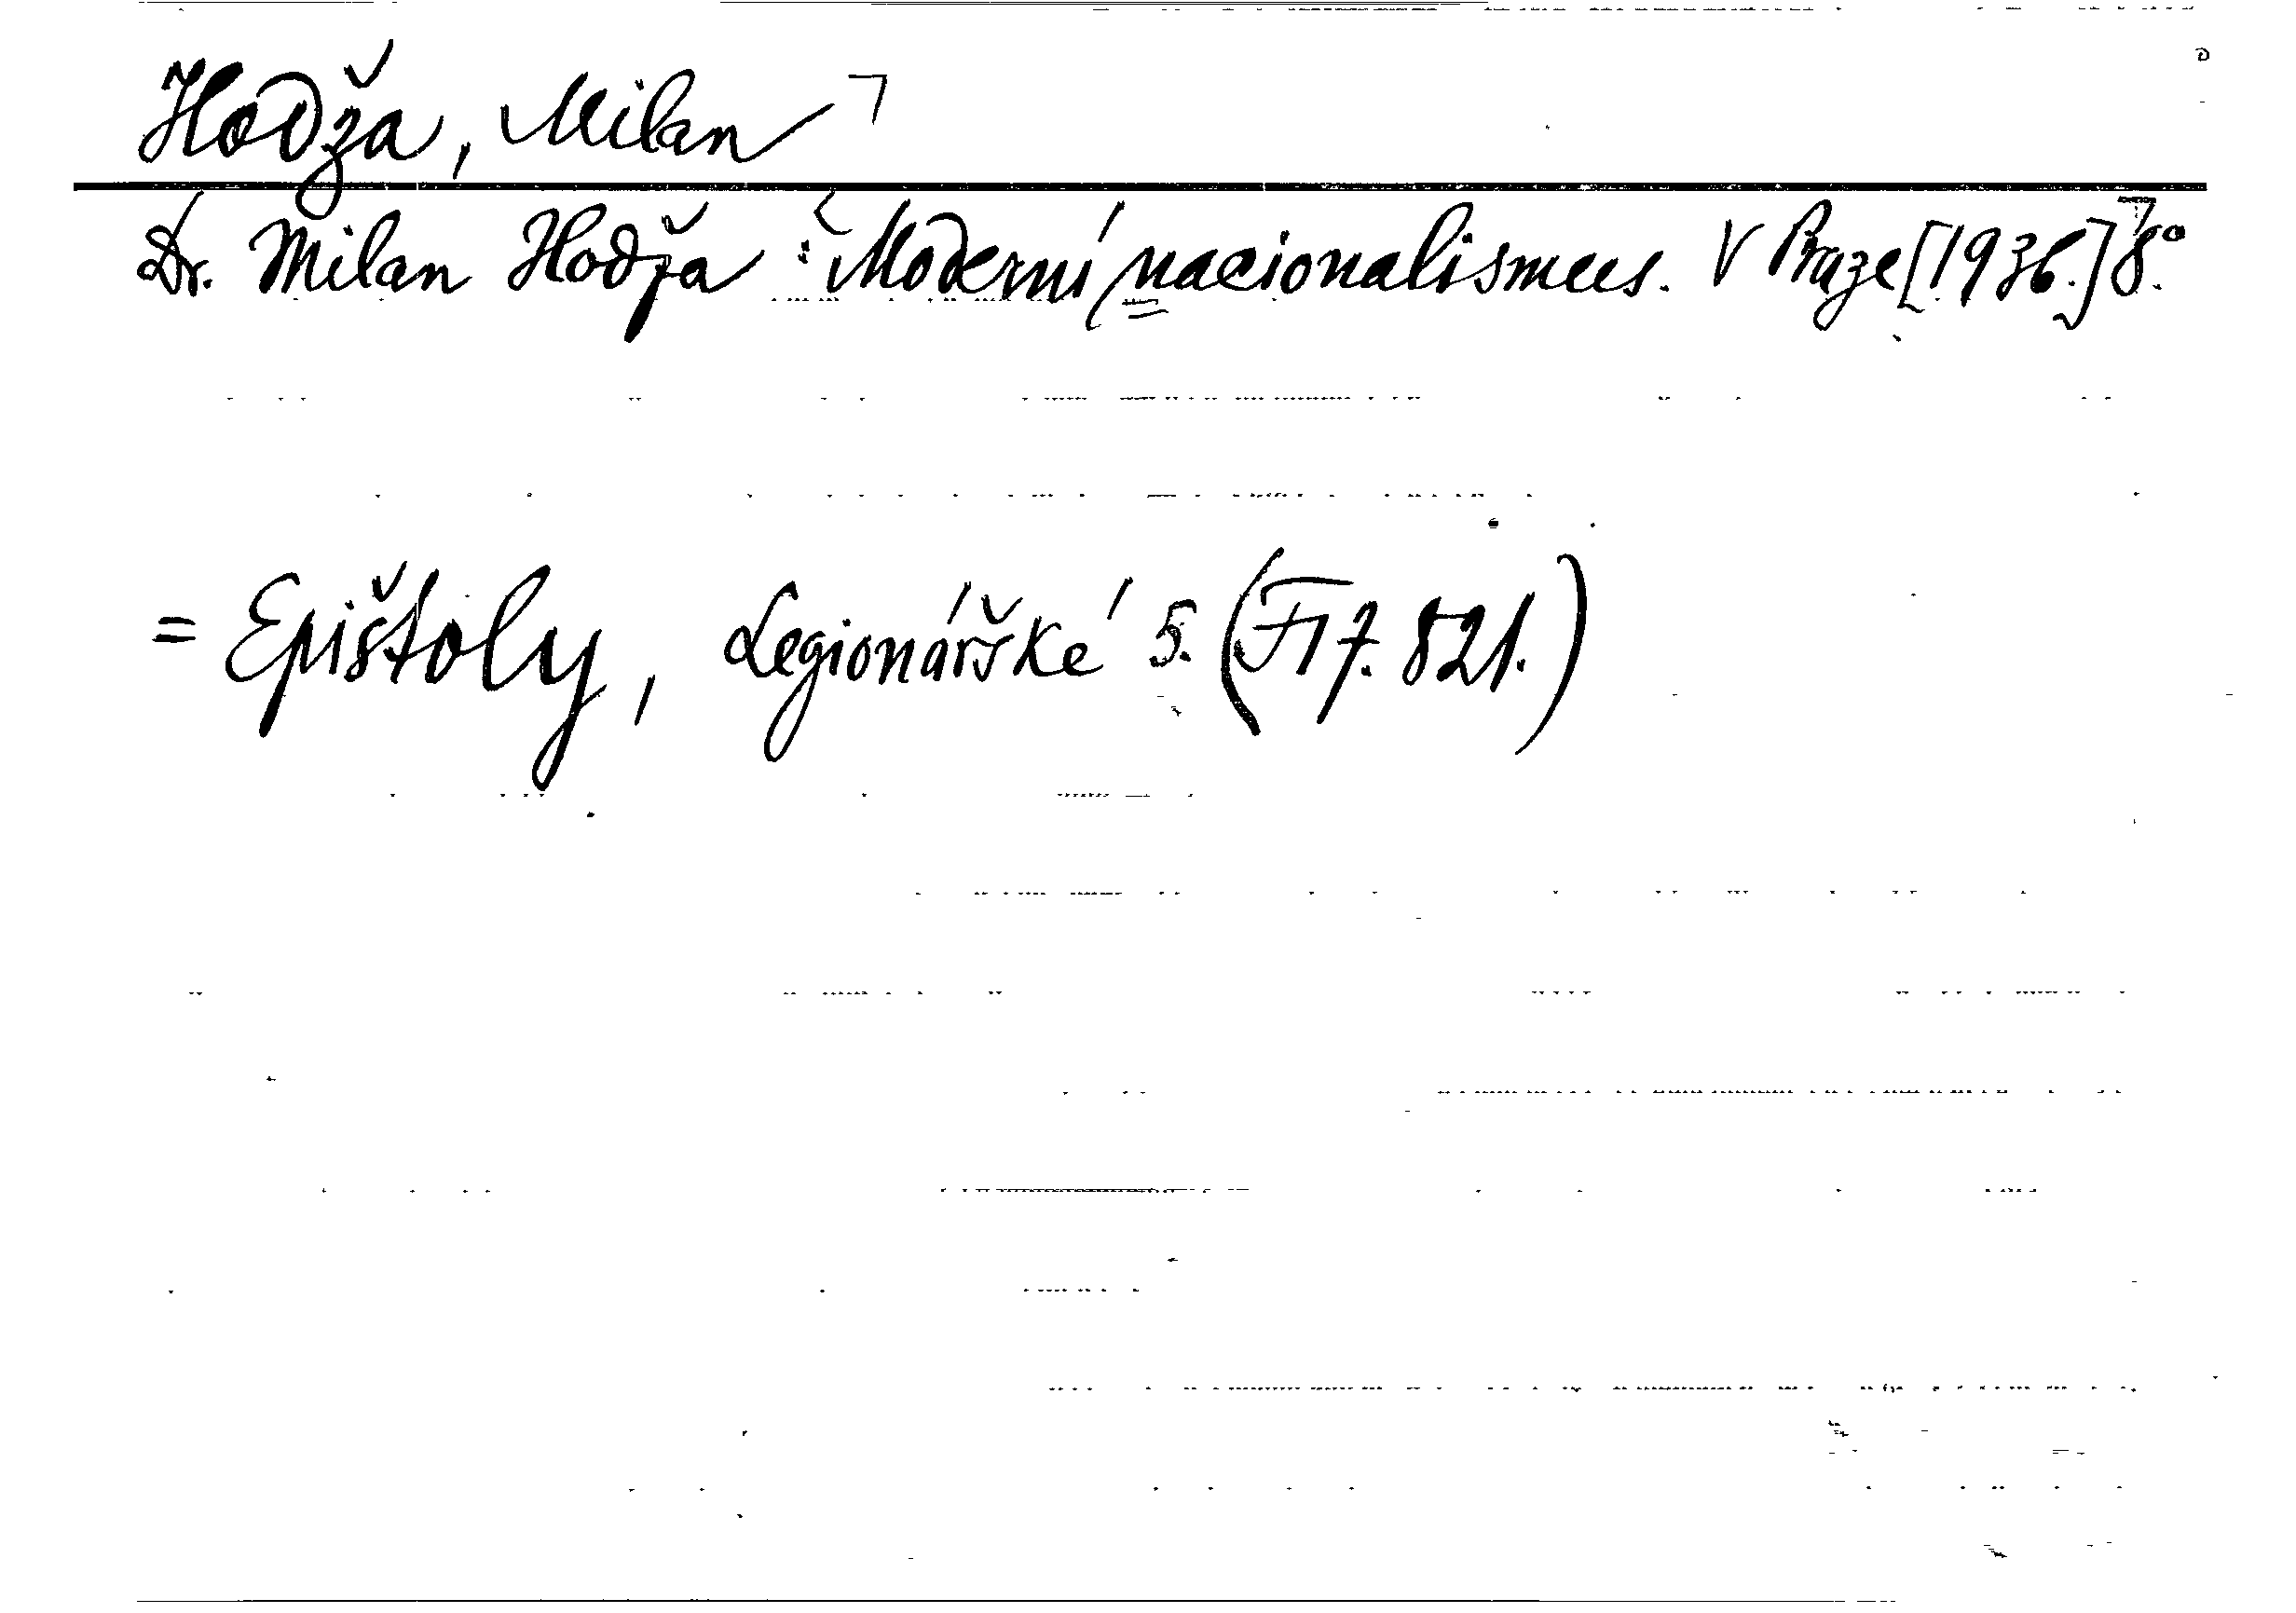 Hodža, Milan
Dr. Milan Hodža : Moderní nacionalismus. V Praze [1936.] 8.°
= Epištoly, Legionářské 5. (F 17. 821.)